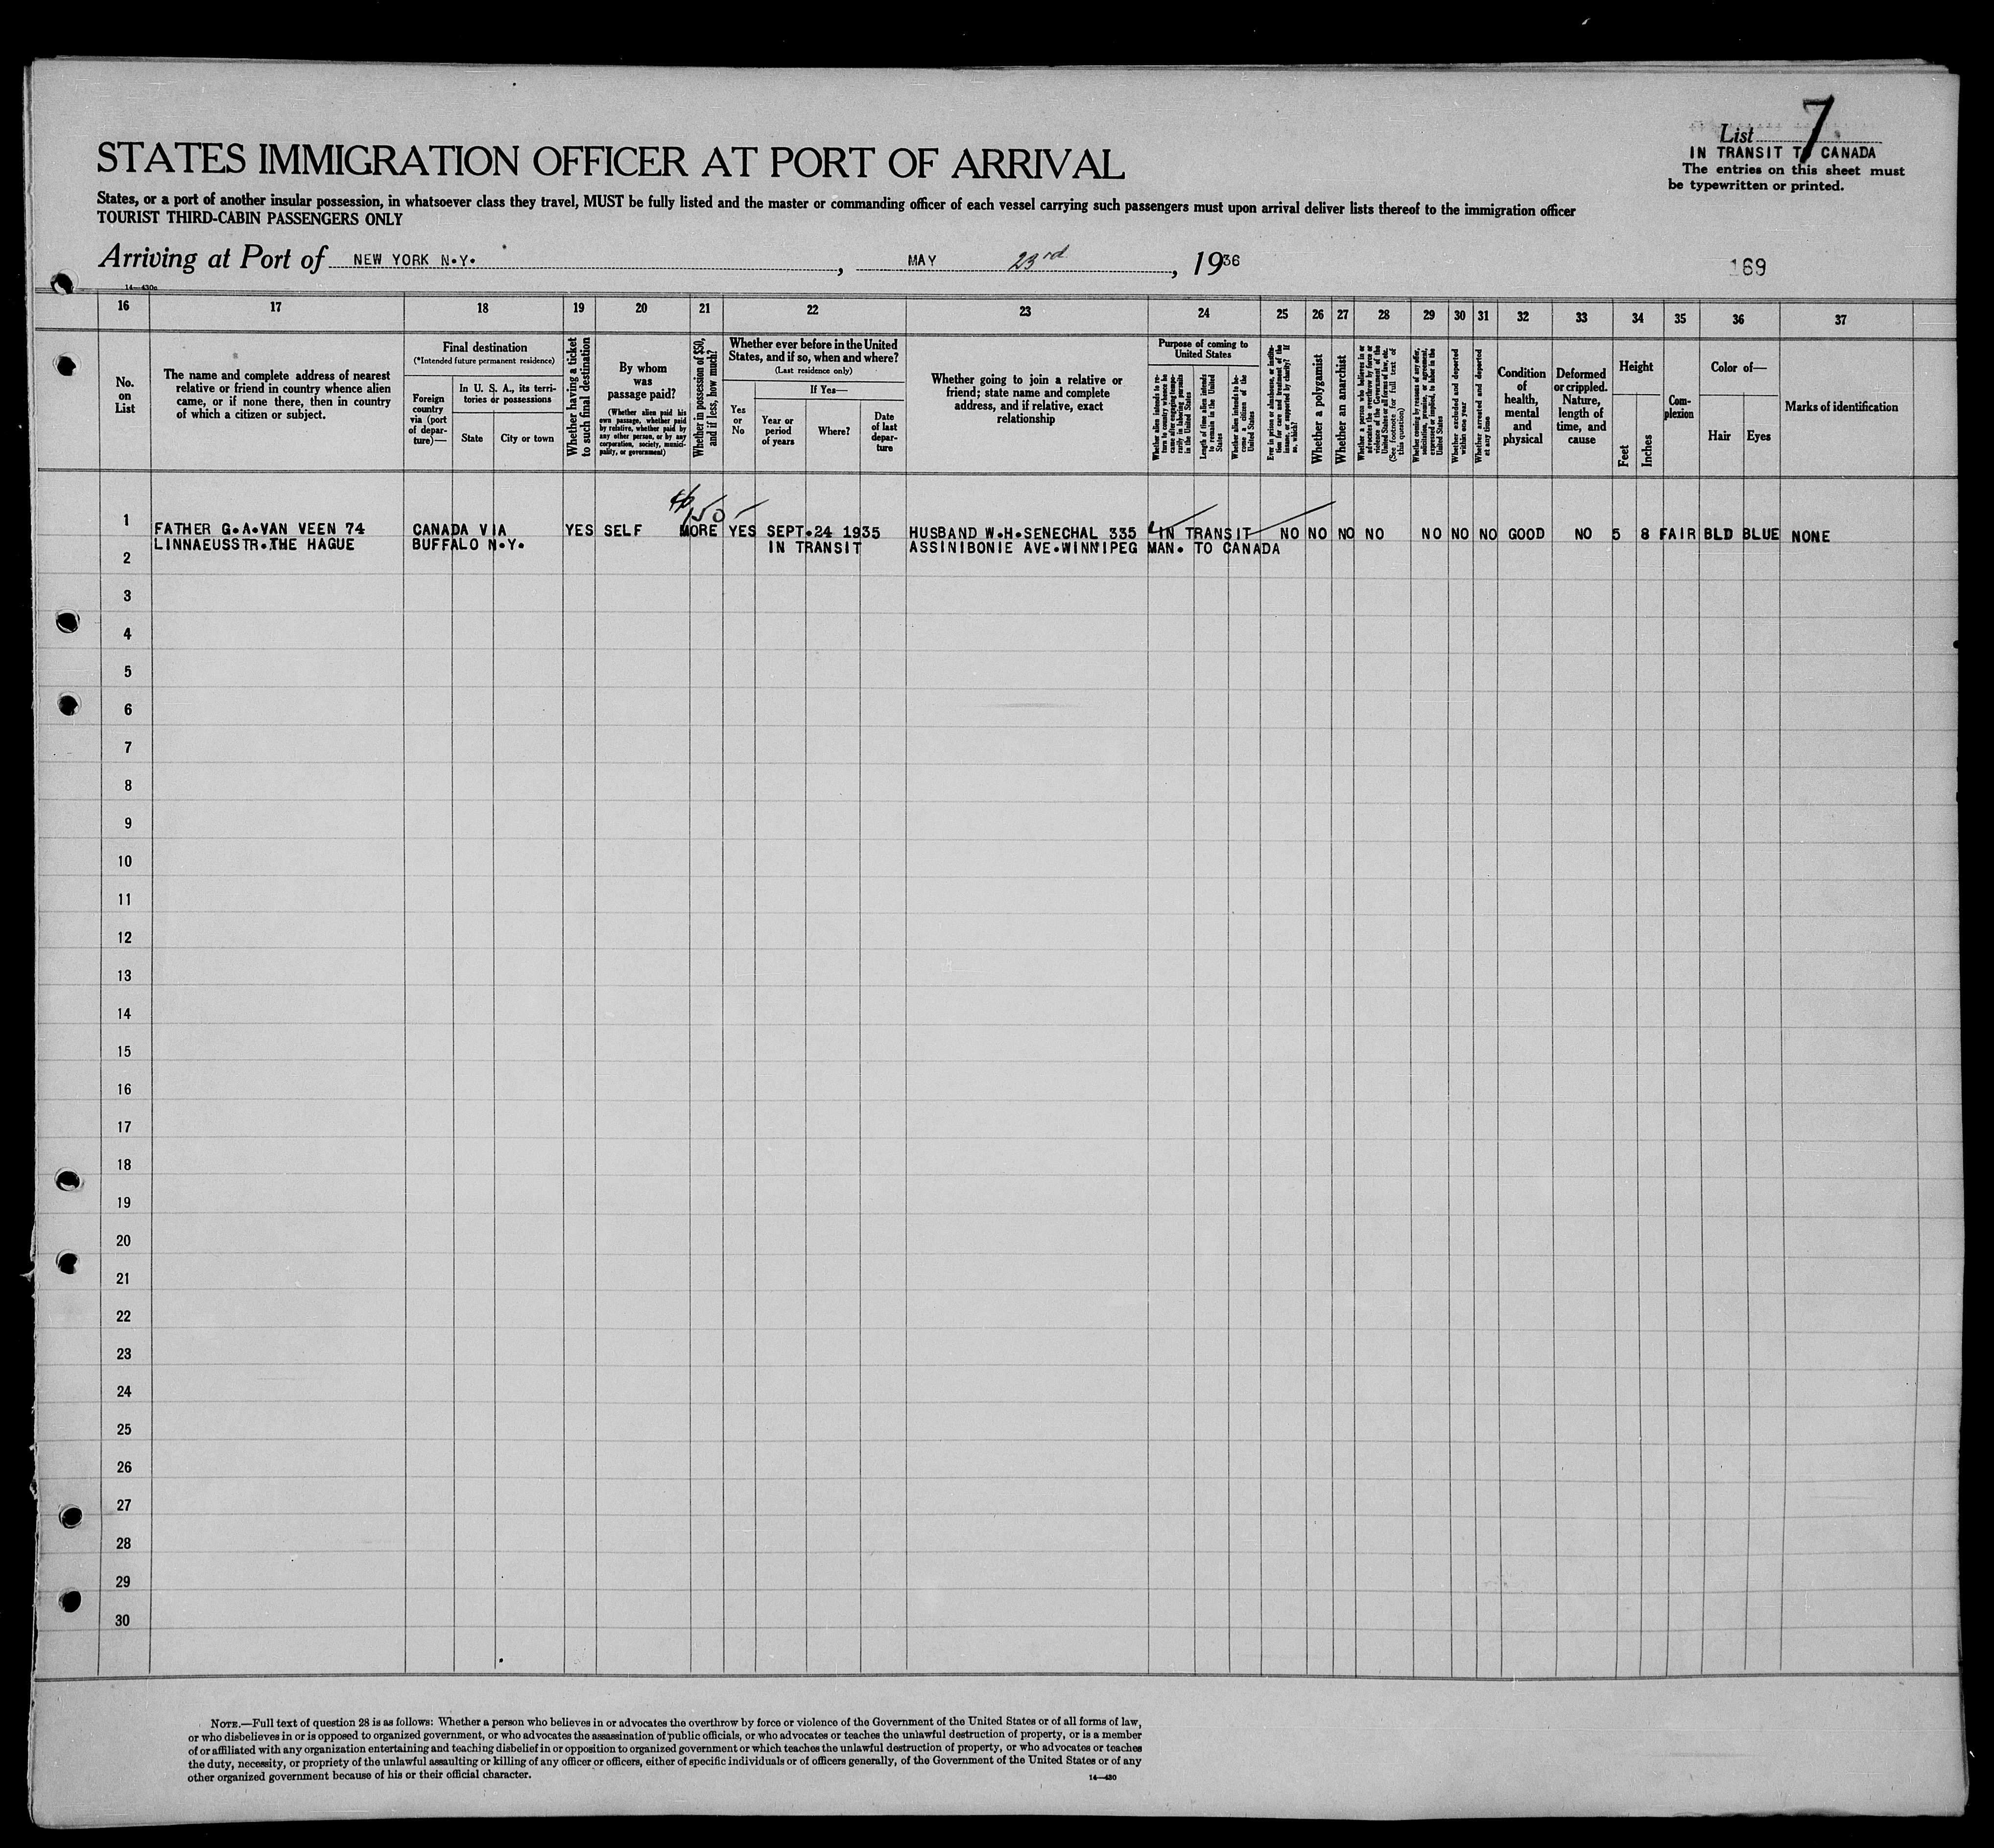 List 7
IN TRANSIT TO CANADA
The entries on this sheet must
be typewritten or printed.
STATES IMMIGRATION OFFICER AT PORT OF ARRIVAL
States, or a port of another insular possession, in whatsoever class they travel, MUST be fully listed and the master or commanding officer of each vessel carrying such passengers must upon arrival deliver lists thereof to the immigration officer
TOURIST THIRD-CABIN PASSENGERS ONLY
Arriving at Port of NEW YORK N.Y. , MAY 23rd , 1936
169
14—430c
16 17 18 19 20 21 22 23 24 25 26 27 28 29 30 31 32 33 34 35 36 37
No.
on
List
The name and complete address of nearest
relative or friend in country whence alien
came, or if none there, then in country
of which a citizen or subject.
Final destination
(*Intended future permanent residence)
Foreign
country
via (port
of depar-
ture)—
In U. S. A., its terri-
tories or possessions
State
City or town
Whether having a ticket
to such final destination
By whom
was
passage paid?
(Whether alien paid his
own passage, whether paid
by relative, whether paid by
any other person, or by any
corporation, society, munici-
pality, or government)
Whether in possession of $50,
and if less, how much?
Whether ever before in the United
States, and if so, when and where?
(Last residence only)
Yes
or
No
If Yes—
Year or
period
of years
Where?
Date
of last
depar-
ture
Whether going to join a relative or
friend; state name and complete
address, and if relative, exact
relationship
Purpose of coming to
United States
Whether alien intends to re-
turn to country whence he
came after engaging tempo-
rarily in laboring pursuits
in the United States
Length of time alien intends
to remain in the United
States
Whether alien intends to be-
come a citizen of the
United States
Ever in prison or almshouse, or institu-
tion for care and treatment of the
insane, or supported by charity? If
so, which?
Whether a polygamist
Whether an anarchist
Whether a person who believes in or
advocates the overthrow by force or
violence of the Government of the
United States or all forms of law, etc.
(See footnote for full text of
this question)
Whether coming by reason of any offer,
solicitation, promise, or agreement,
expressed or implied, to labor in the
United States
Whether excluded and deported
within one year
Whether arrested and deported
at any time
Condition
of
health,
mental
and
physical
Deformed
or crippled.
Nature,
length of
time, and
cause
Height
Feet
Inches
Com-
plexion
Color of—
Hair
Eyes
Marks of identification
1 FATHER G.A.VAN VEEN 74 CANADA VIA YES SELF MORE YES SEPT.24 1935 HUSBAND W.H.SENECHAL 335 IN TRANSIT NO NO NO NO NO NO NO GOOD NO 5 8 FAIR BLD BLUE NONE
LINNAEUSSTR.THE HAGUE BUFFALO N.Y. IN TRANSIT ASSINIBONIE AVE.WINNIPEG MAN. TO CANADA
2
3
4
5
6
7
8
9
10
11
12
13
14
15
16
17
18
19
20
21
22
23
24
25
26
27
28
29
30
NOTE.—Full text of question 28 is as follows: Whether a person who believes in or advocates the overthrow by force or violence of the Government of the United States or of all forms of law,
or who disbelieves in or is opposed to organized government, or who advocates the assassination of public officials, or who advocates or teaches the unlawful destruction of property, or is a member
of or affiliated with any organization entertaining and teaching disbelief in or opposition to organized government or which teaches the unlawful destruction of property, or who advocates or teaches
the duty, necessity, or propriety of the unlawful assaulting or killing of any officer or officers, either of specific individuals or of officers generally, of the Government of the United States or of any
other organized government because of his or their official character.
14—430